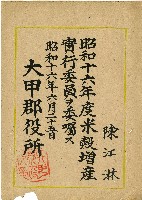 陳江林
昭和十六年度米穀增産
實行委員ヲ委囑ス
昭和十六年六月二十五日
大甲郡役所